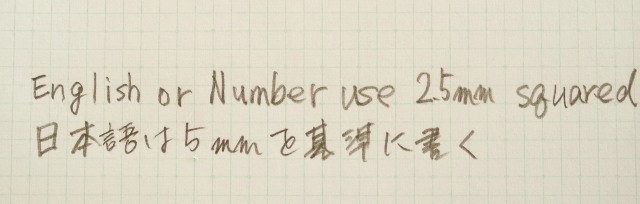 English or Number use 2.5mm squared
日本語は5mmを基準に書く